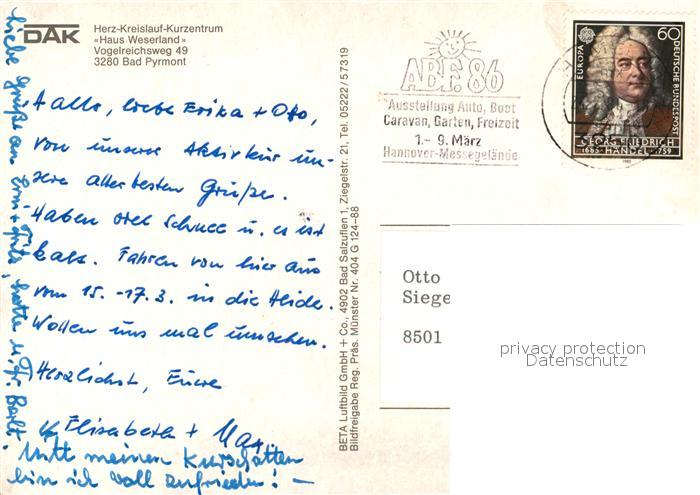 DAK
Herz-Kreislauf-Kurzentrum
«Haus Weserland»
Vogelreichsweg 49
3280 Bad Pyrmont
Hallo, liebe Erika + Otto,
von unserer Aktivkur un-
sere allerbesten Grüße.
Haben viel Schnee u. es ist
kalt. Fahren von hier aus
vom 15. -17.3. in die Heide.
Wollen uns mal umsehen.
Herzlichst, Eure
Elisabeth + Max
Mitt meinen Kurschatten
bin ich voll zufrieden! –
Liebe Grüße an Erni + Fritz,
BETA Luftbild GmbH + Co., 4902 Bad Salzuflen 1, Ziegelstr. 21, Tel. 05222/57319
Bildfreigabe Reg. Präs. Münster Nr. 404 G 124–88
ABF. 86
Ausstellung Auto, Boot
Caravan, Garten, Freizeit
1.- 9. März
Hannover-Messegelände
EUROPA
60
DEUTSCHE BUNDESPOST
GEORG FRIEDRICH
1685 HÄNDEL 1759
1985
Otto
Siege
8501
privacy protection
Datenschutz